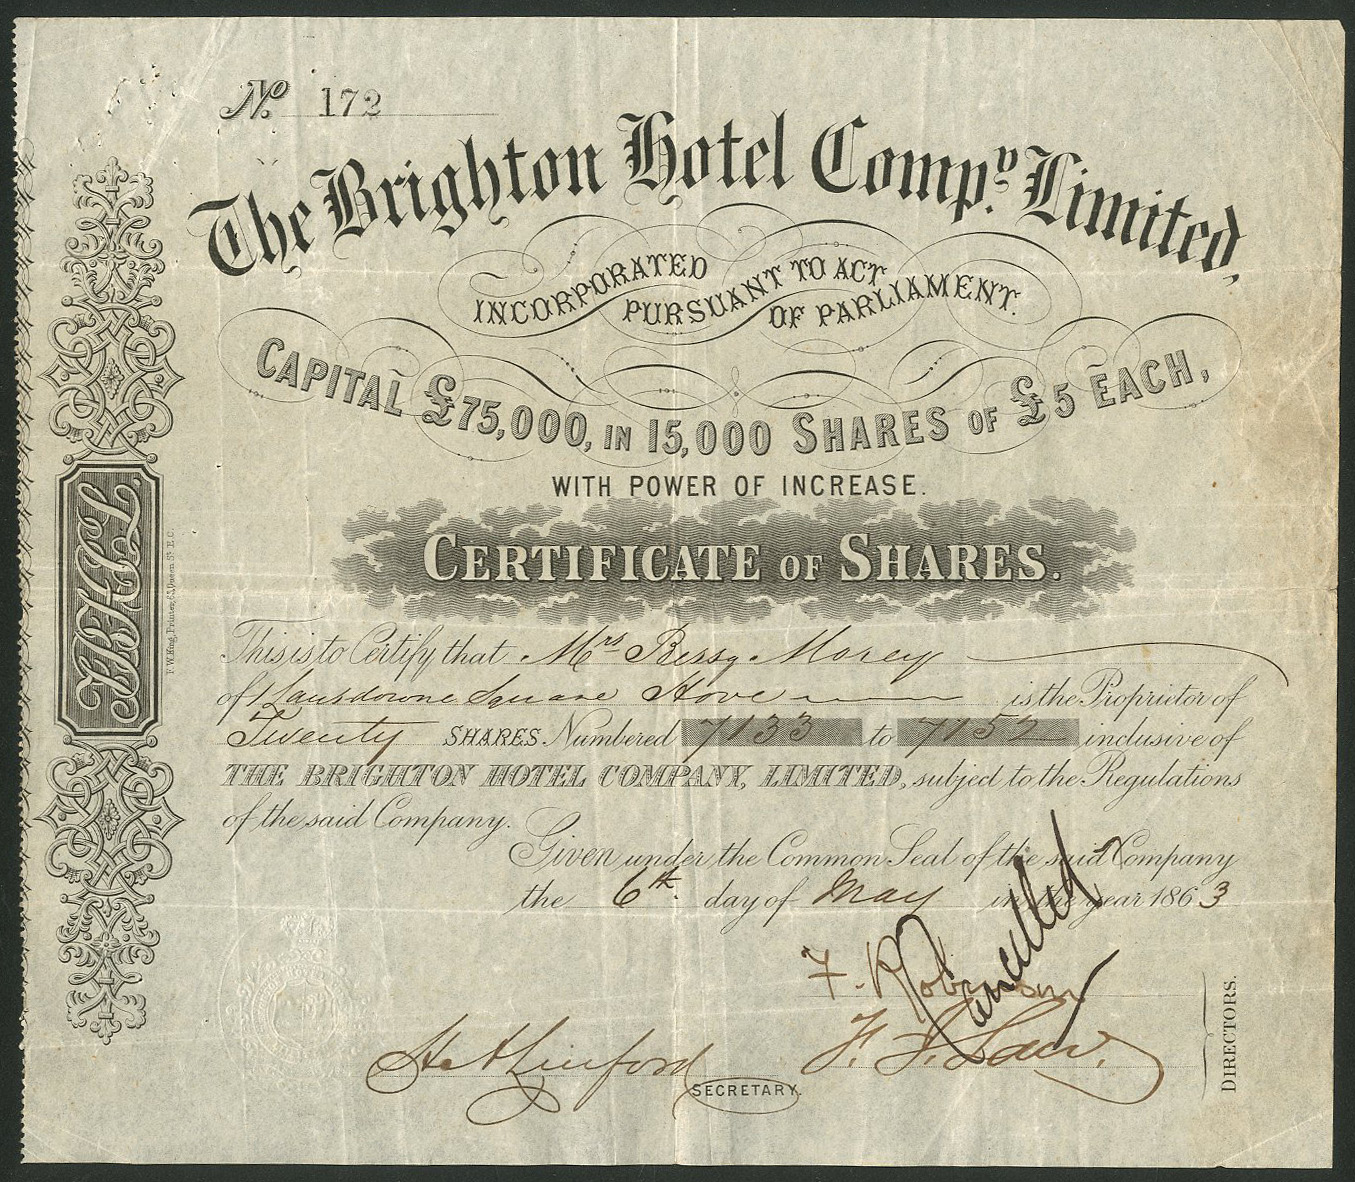 No. 172
The Brighton Hotel Compy. Limited,
INCORPORATED PURSUANT TO ACT OF PARLIAMENT.
CAPITAL £75,000, IN 15,000 SHARES OF £5 EACH,
WITH POWER OF INCREASE.
CERTIFICATE OF SHARES.
This is to Certify that Mrs Bessy Morey
of Lansdowne Square Hove is the Proprietor of
Twenty SHARES Numbered 7133 to 7152 inclusive of
THE BRIGHTON HOTEL COMPANY, LIMITED, subject to the Regulations
of the said Company.
Given under the Common Seal of the said Company
the 6th. day of May in the year 1863
Cancelled
F. Robinson
F. F. Law.
DIRECTORS.
SECRETARY.
TBHCL
F. W. King, Printer, 63, Queen St. E.C.